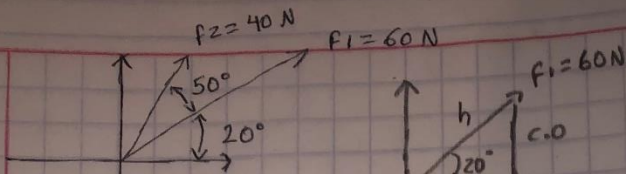 F2 = 40 N
F1 = 60 N
50°
20°
F1 = 60 N
h
C.O
20°